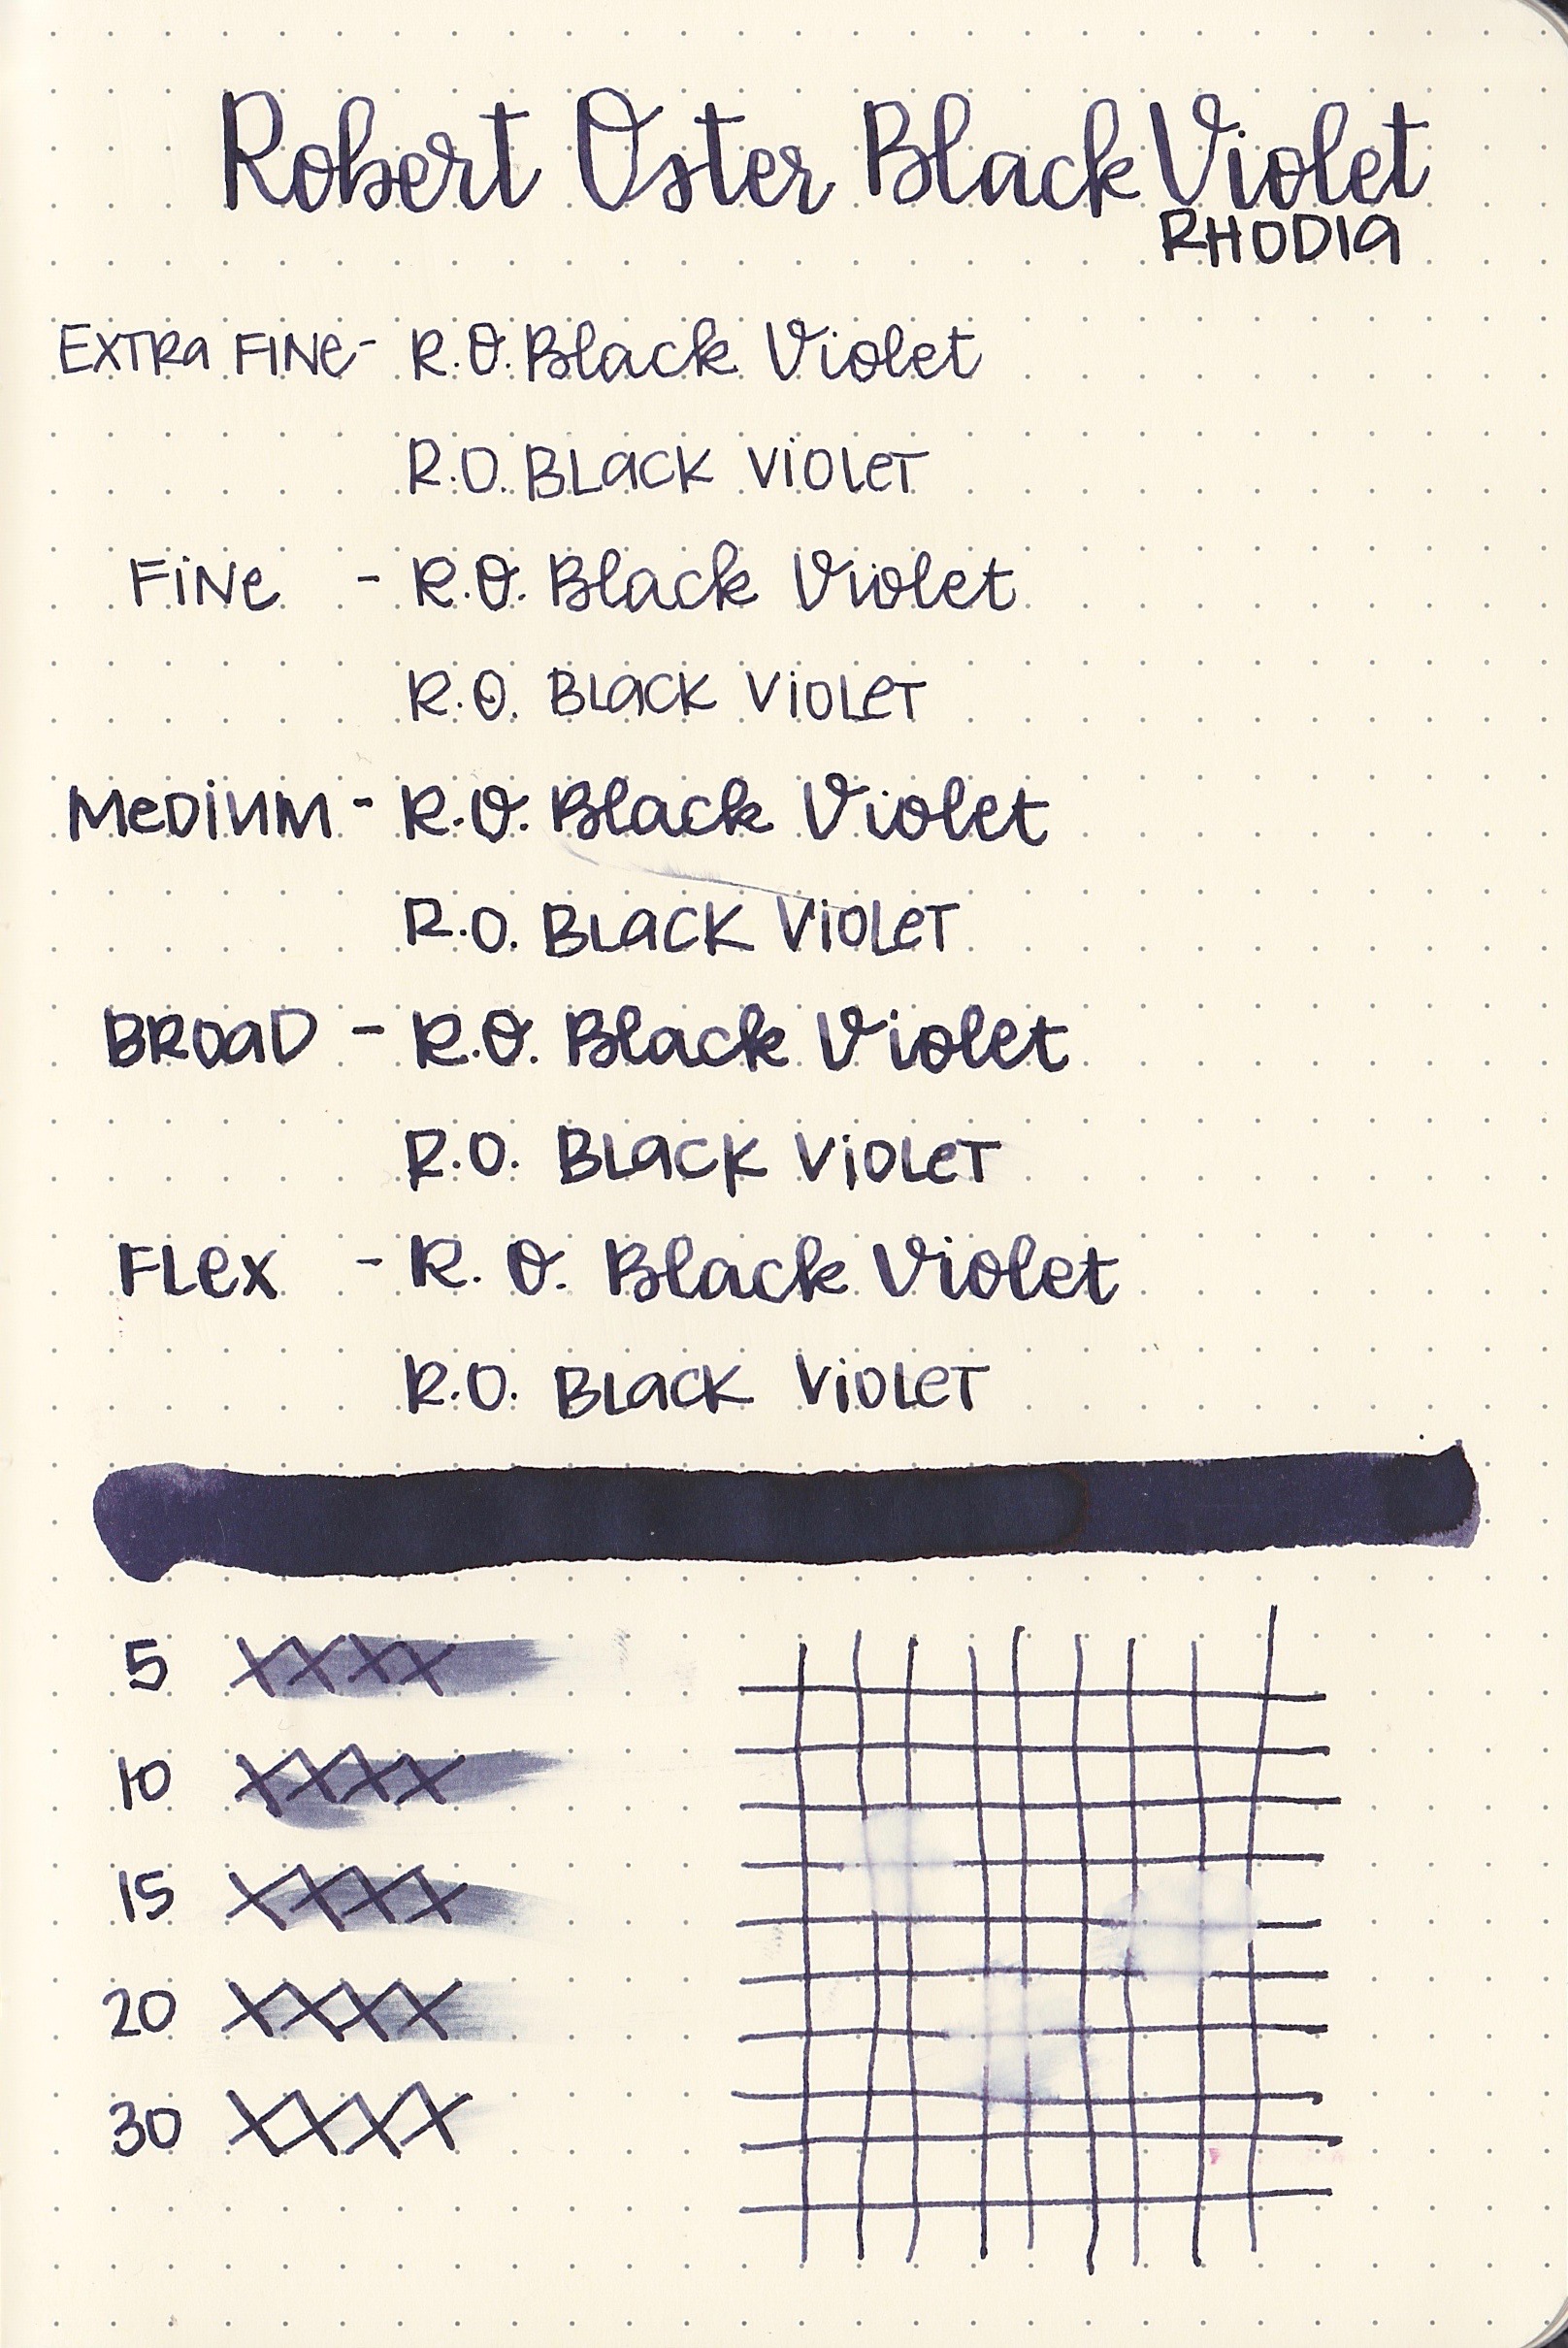 Robert Oster Black Violet
RHODIA
EXTRA FINE - R.O. Black Violet
R.O. BLACK VIOLET
FINE - R.O. Black Violet
R.O. BLACK VIOLET
MEDIUM - R.O. Black Violet
R.O. BLACK VIOLET
BROAD - R.O. Black Violet
R.O. BLACK VIOLET
FLEX - R. O. Black Violet
R.O. BLACK VIOLET
5 XXXX
10 XXXX
15 XXXX
20 XXXX
30 XXXX